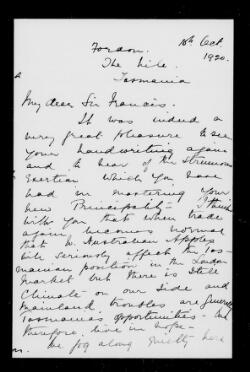 18th Oct.
Fordon. 1920.
The Nile.
Tasmania
My dear Sir Francis.
It was indeed a
very great pleasure to see
your handwriting again
and to hear of the strenuous
exertion which you have
had in mastering your
new Principality - I think
with you that when trade
again becomes normal
that W. Australian Apples
will seriously affect the Tas-
manian position in the London
market but there is still
Climate on our side and
Mainland troubles are generally
Tasmanias opportunities - we
therefore live in hope -
We jog along quietly here